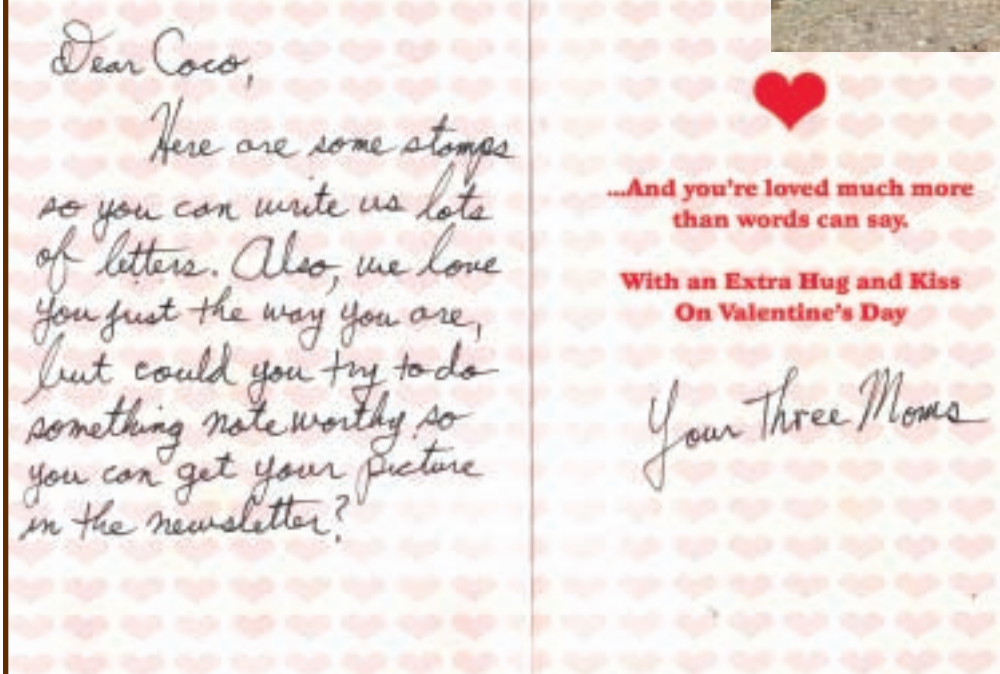 Dear Coco,
Here are some stamps
so you can write us lots
of letters. Also, we love
you just the way you are,
but could you try to do
something note worthy so
you can get your picture
in the newsletter?
...And you're loved much more
than words can say.
With an Extra Hug and Kiss
On Valentine's Day
Your Three Moms